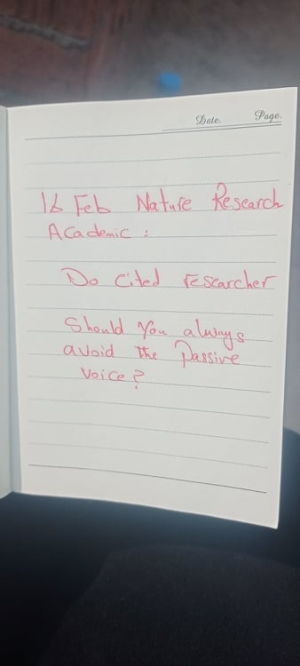 Date. Page.
16 Feb Nature Research
Academic :
Do cited researcher
Should you always
avoid the Passive
voice?